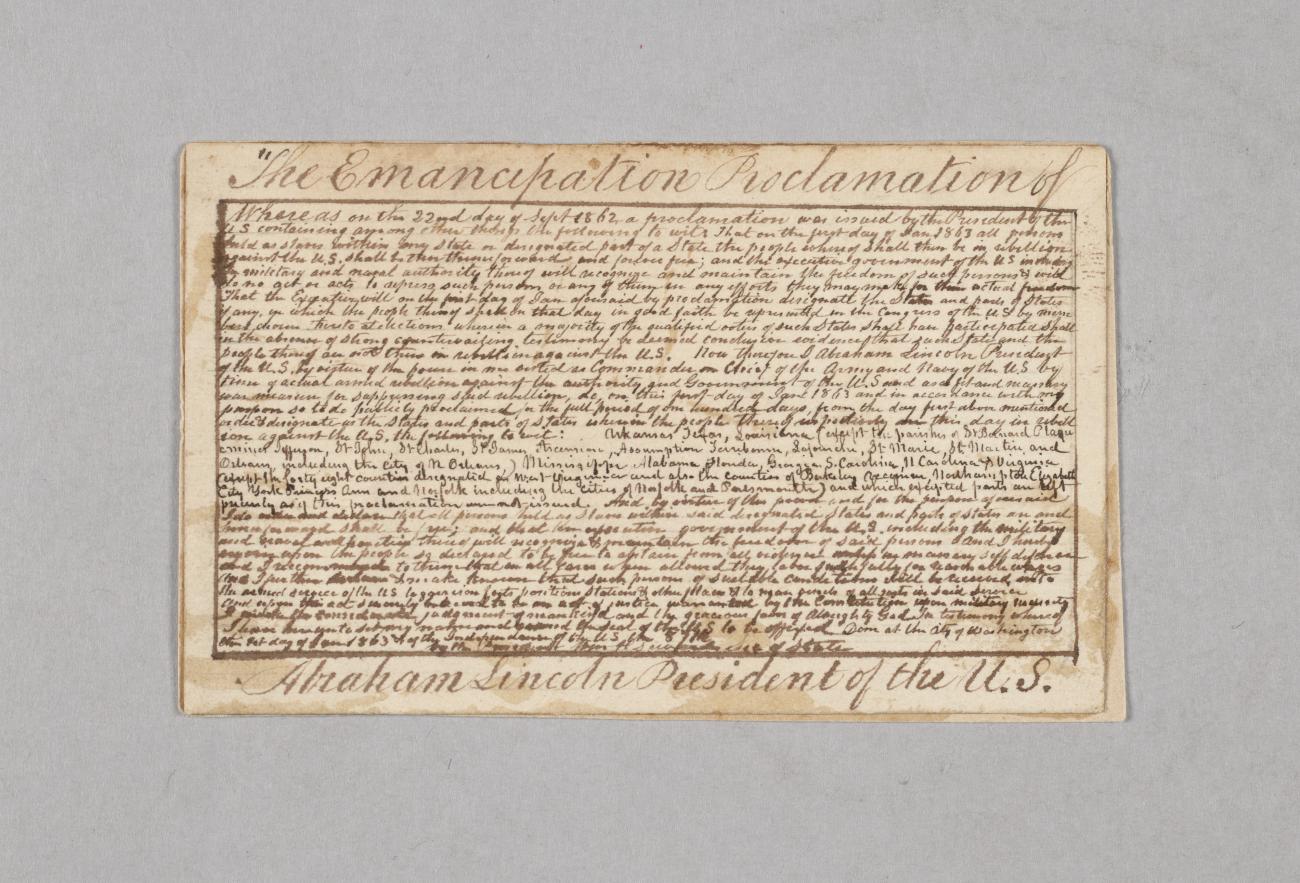 "The Emancipation Proclamation of
Whereas on the 22nd day of Sept 1862, a proclamation was issued by the President of the
U.S containing among other things the following to wit: That on the first day of Jan 1863 all persons
held as slaves within any State or designated part of a State the people whereof shall then be in rebellion
against the U.S. shall be then thenceforward and forever free; and the executive government of the US including
the military and naval authority thereof will recognize and maintain the freedom of such persons & will
do no act or acts to repress such persons or any of them in any efforts they may make for their actual freedom
That the Executive will on the first day of Jan aforesaid by proclamation designate the States and parts of States
if any, in which the people thereof shall on that day in good faith be represented in the Congress of the U.S by mem
bers chosen thereto at elections wherein a majority of the qualified voters of such States shall have participated shall
in the absence of strong countervailing testimony be deemed conclusive evidence that such State and the
people thereof are not then in rebellion against the U.S. Now therefore I Abraham Lincoln President
of the U.S. by virtue of the power in me vested as Commander in Chief of the Army and Navy of the U.S by
time of actual armed rebellion against the authority and Government of the U.S and as a fit and necessary
war measure for suppressing said rebellion, do, on this first day of Jan 1863 and in accordance with my
purpose so to do publicly proclaimed for the full period of one hundred days, from the day first above mentioned
order & designate as the States and parts of States wherein the people thereof respectively are this day in rebell
ion against the U.S. the following to wit: Arkansas Texas, Louisiana (except the parishes of St Bernard Plaqu
emines Jefferson, St John, St Charles, St James Ascension, Assumption Terrebonne, Lafourche, St Marie, St Martin and
Orleans, including the City of N Orleans,) Mississippi Alabama Florida, Georgia S. Carolina, N Carolina & Virginia
(except the forty eight counties designated as West Virginia and also the counties of Berkeley Accomac Northampton Elizabeth
City York Princess Ann and Norfolk including the cities of Norfolk and Portsmouth) and which excepted parts are left
precisely as if this proclamation were not issued. And by virtue of the power and for the purpose aforesaid
I do order and declare that all persons held as slaves within said designated States and parts of states are and
henceforward shall be free; and that the executive government of the U.S. including the military
and naval authorities thereof will recognize & maintain the freedom of said persons And I hereby
enjoin upon the people so declared to be free to abstain from all violence unless in necessary self defence
and I recommend to them that in all cases when allowed they labor faithfully for reasonable wages
And I further declare & make known that such persons of suitable condition will be received into
the armed service of the US to garrison forts positions stations & other places & to man vessels of all sorts in said service
And upon this act sincerely believed to be an act of justice warranted by the Constitution upon military necessity
I invoke the considerate judgment of mankind and the gracious favor of Almighty God In testimony whereof
I have hereunto set my name and caused the seal of the U.S to be affixed Done at the City of Washington
the 1st day of Jan 1863 & of the Independence of the U.S. the 87th
by the President Secretary of State
Abraham Lincoln President of the U.S.